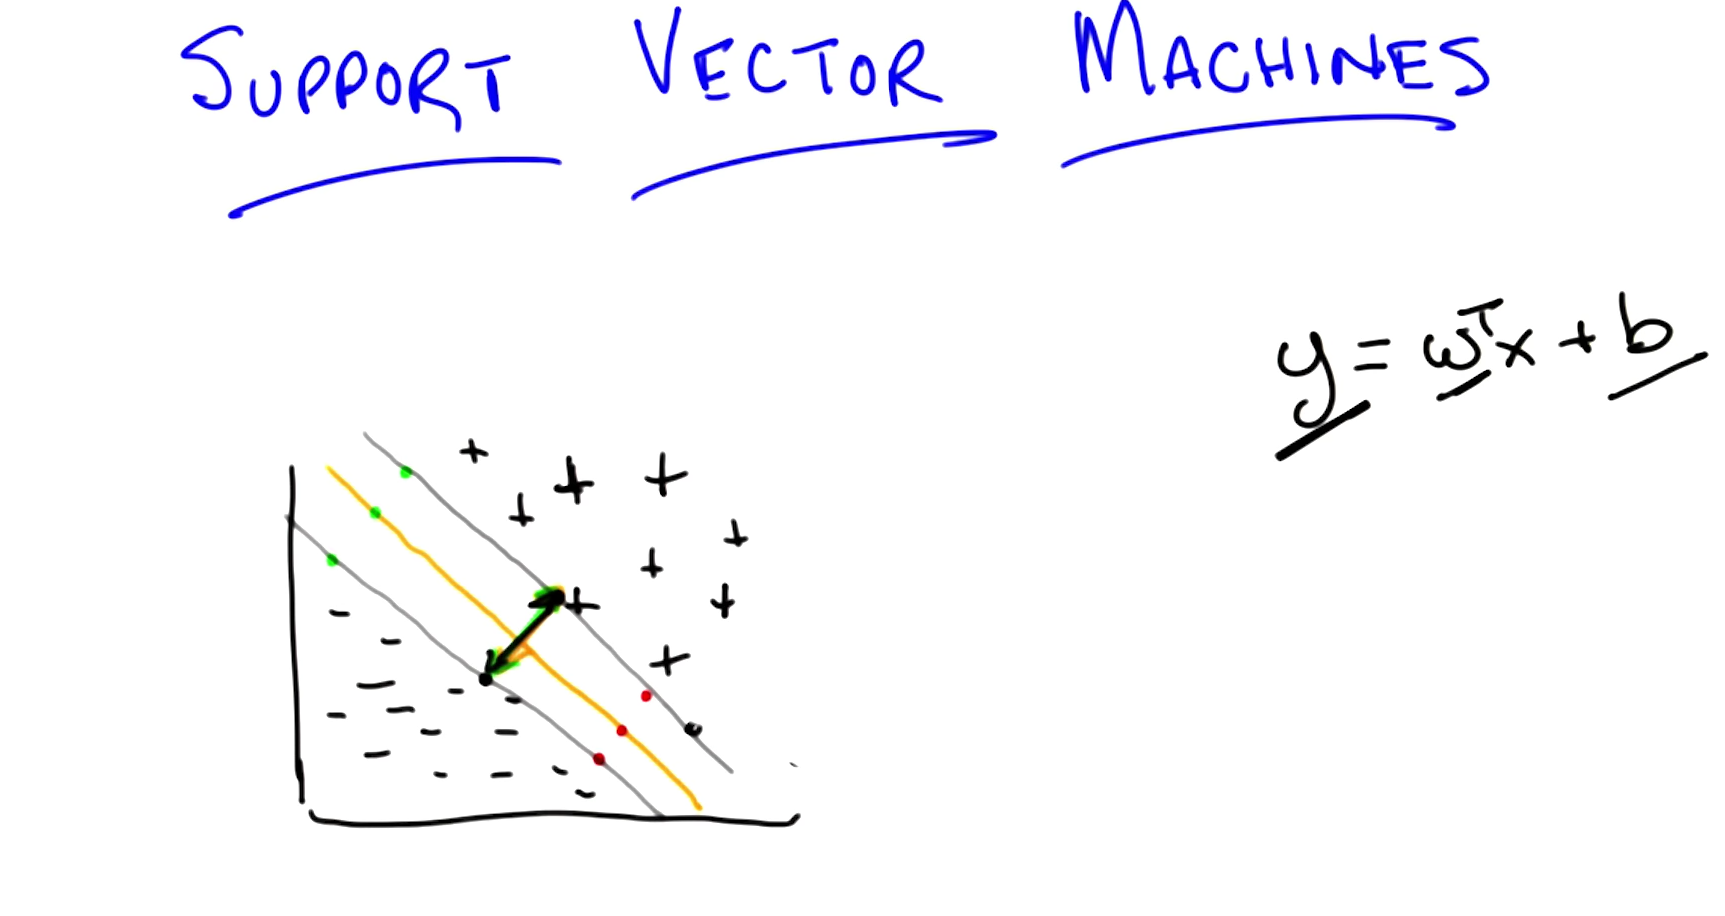 SUPPORT VECTOR MACHINES
y = wᵀx + b